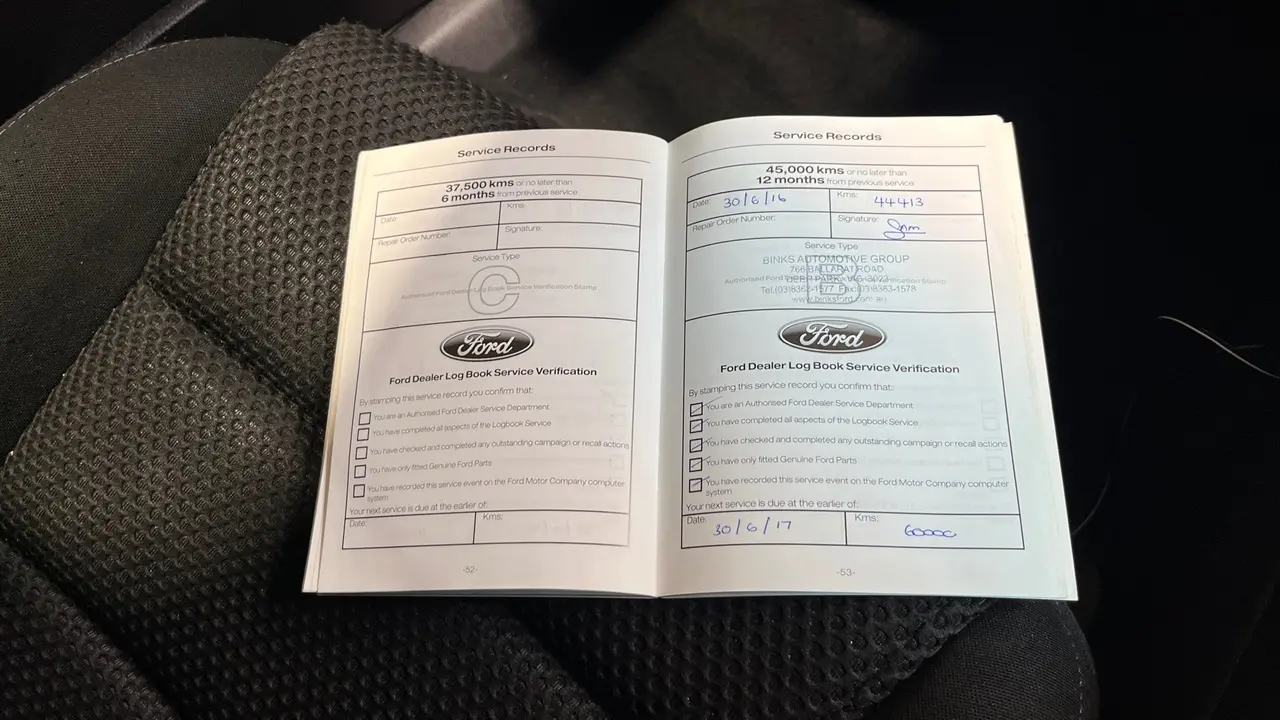 Service Records
37,500 kms or no later than
6 months from previous service
Date:
Kms:
Repair Order Number:
Signature:
Service Type
C
Authorised Ford Dealer Log Book Service Verification Stamp
Ford
Ford Dealer Log Book Service Verification
By stamping this service record you confirm that:
You are an Authorised Ford Dealer Service Department
You have completed all aspects of the Logbook Service
You have checked and completed any outstanding campaign or recall actions
You have only fitted Genuine Ford Parts
You have recorded this service event on the Ford Motor Company computer
system
Your next service is due at the earlier of:
Date:
Kms:
-52-
Service Records
45,000 kms or no later than
12 months from previous service
Date: 30/6/16
Kms: 44413
Repair Order Number:
Signature:
Service Type
B
BINKS AUTOMOTIVE GROUP
766 BALLARAT ROAD
Authorised Ford Verification Stamp
DEER PARK VIC 3023
Tel.(03)8363-1577 Fax:(03)8363-1578
www.binksford.com.au
Ford
Ford Dealer Log Book Service Verification
By stamping this service record you confirm that:
You are an Authorised Ford Dealer Service Department
You have completed all aspects of the Logbook Service
You have checked and completed any outstanding campaign or recall actions
You have only fitted Genuine Ford Parts
You have recorded this service event on the Ford Motor Company computer
system
Your next service is due at the earlier of:
Date: 30/6/17
Kms: 60000
-53-